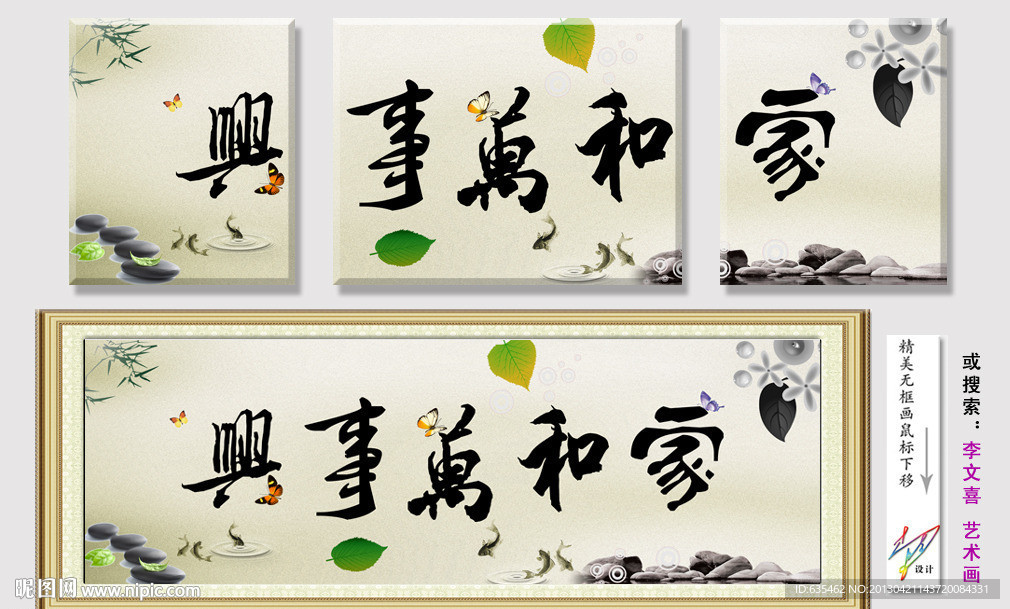 家和萬事興
家和萬事興
精美无框画鼠标下移
或搜索：李文喜 艺术画
设计
昵图网 www.nipic.com
ID:635462 NO:20130421143720084331